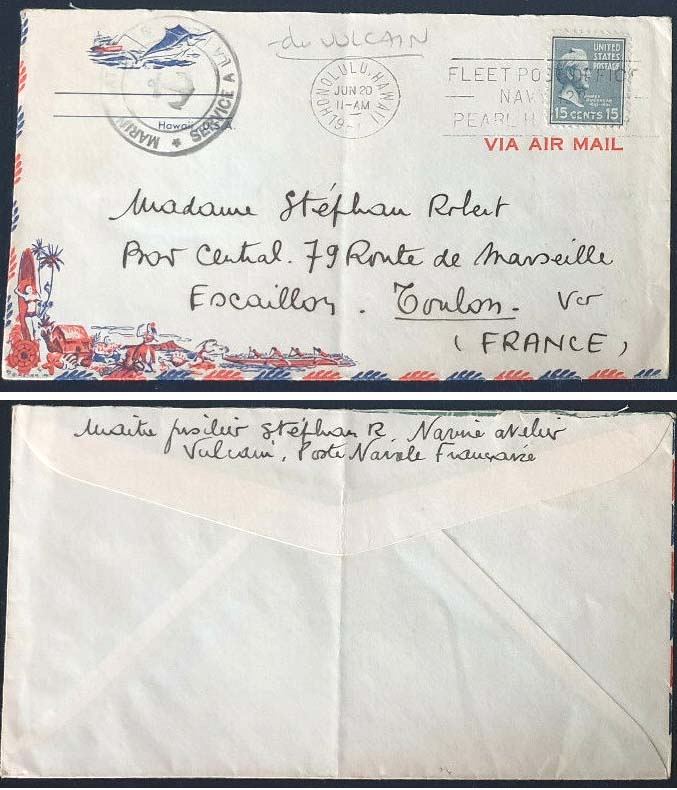 du VULCAIN
HONOLULU, HAWAII
JUN 20
11-AM
FLEET POST OFFICE
NAVY
PEARL H
UNITED
STATES
POSTAGE
15 CENTS 15
MARIN
SERVICE A LA
Hawaii U.S.A.
VIA AIR MAIL
Madame Stéphan Robert
Bar Central. 79 Route de Marseille
Escaillon. Toulon. Var
(FRANCE)
Maitre fusilier Stéphan R. Navire atelier
Vulcain, Poste Navale Française